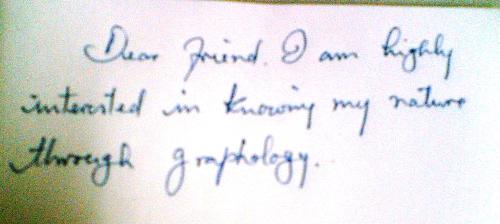 Dear friend. I am highly
interested in knowing my nature
through graphology.